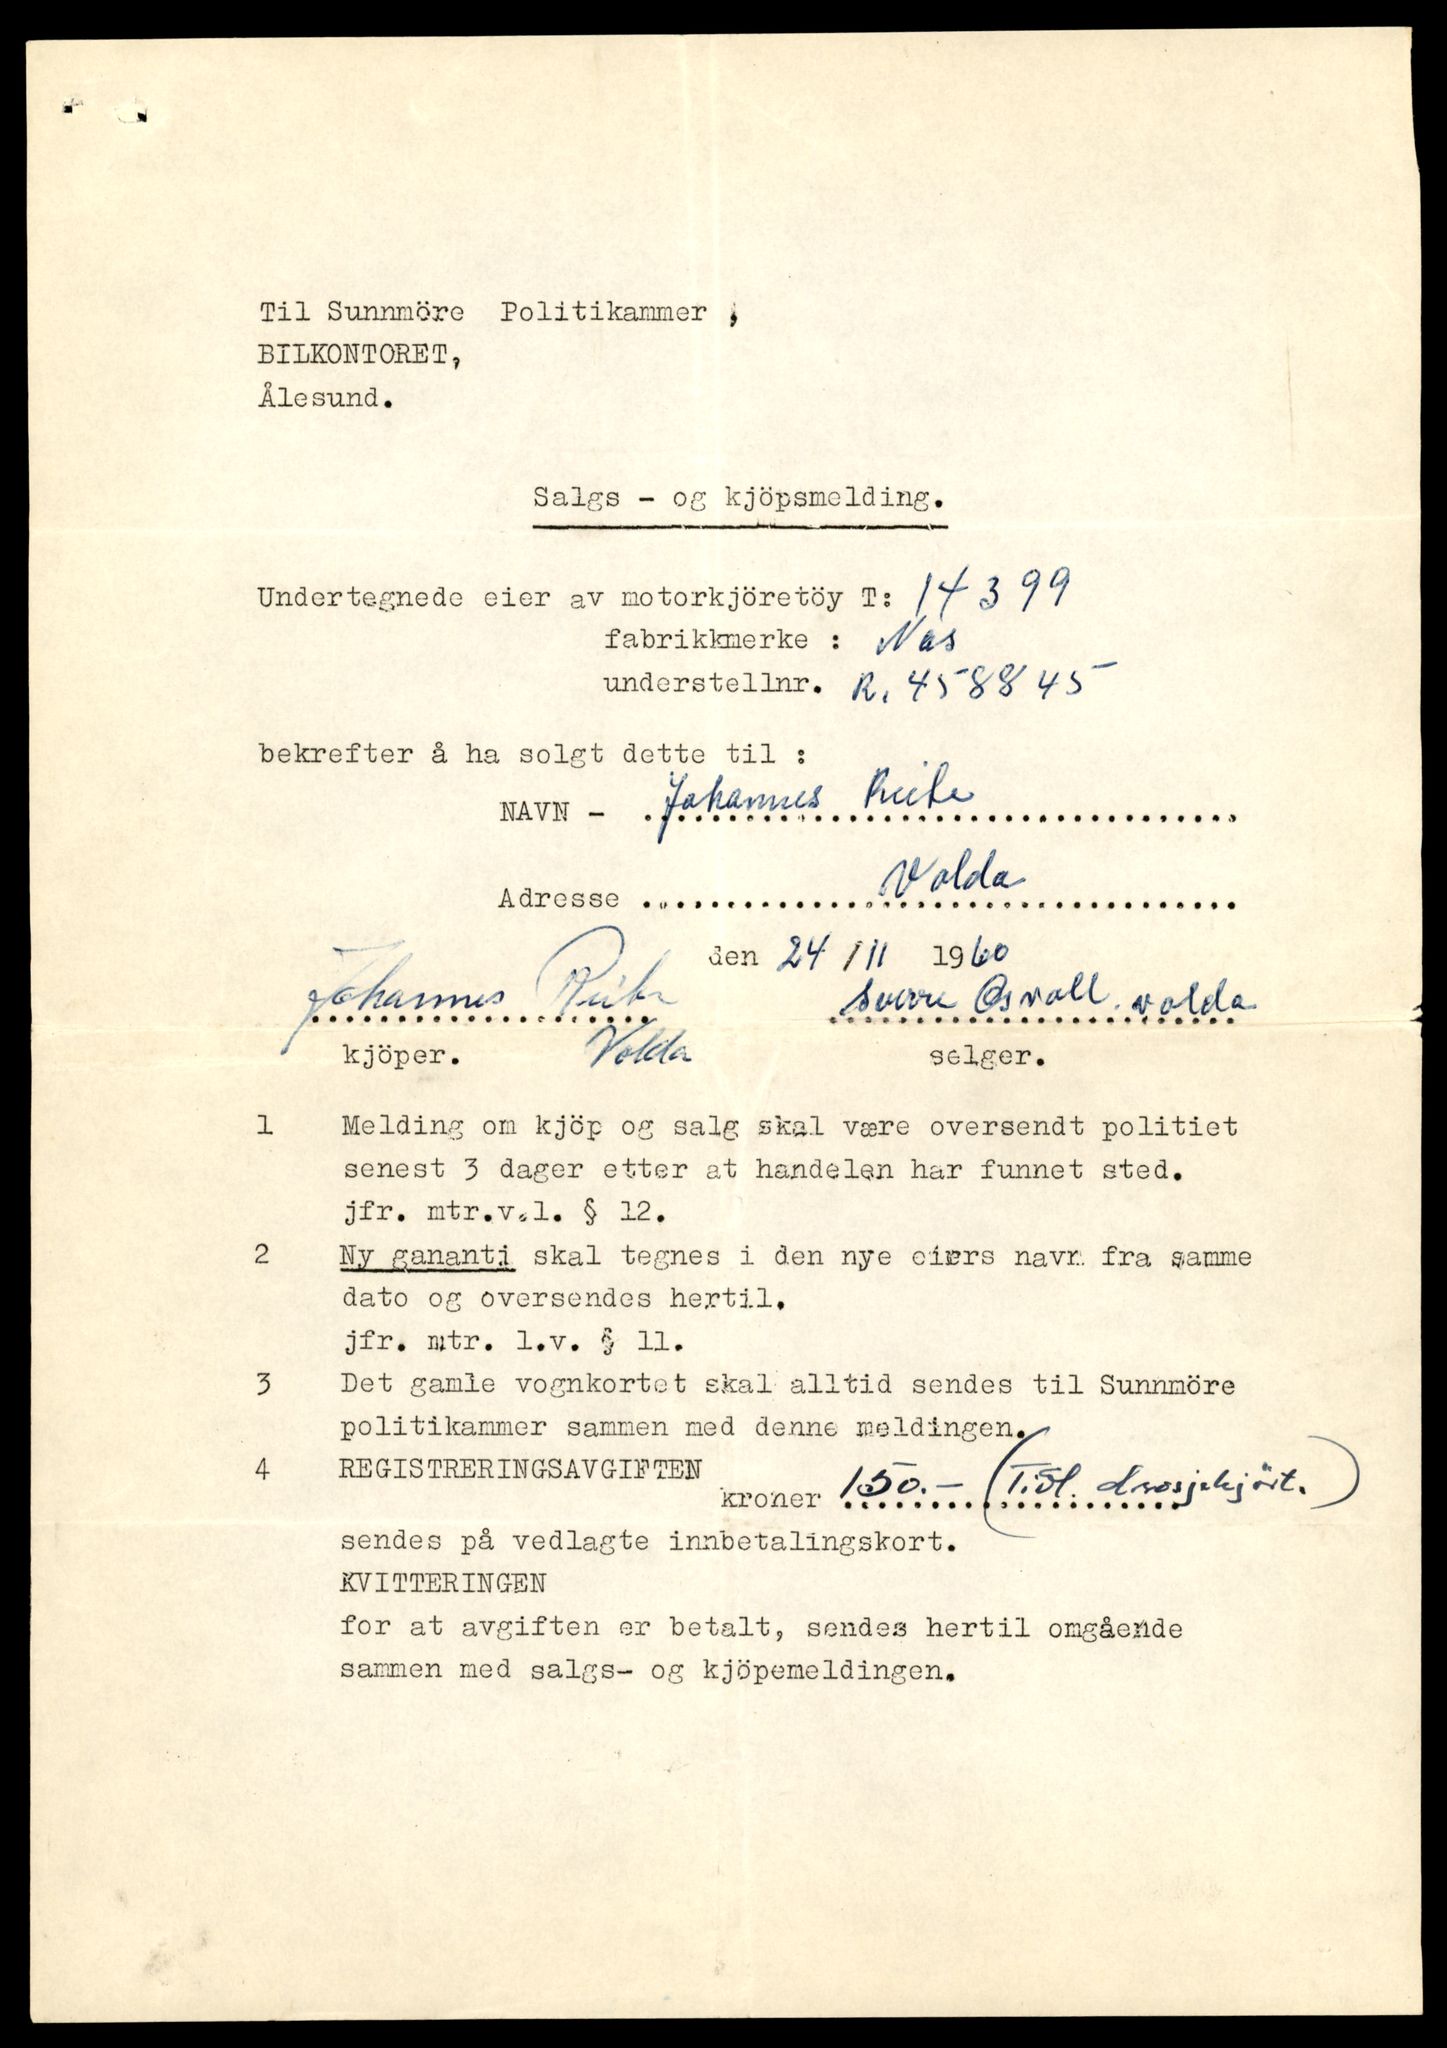 Til Sunnmöre Politikammer ,
BILKONTORET,
Ålesund.
Salgs - og kjöpsmelding.
Undertegnede eier av motorkjöretöy T: 14399
fabrikkmerke : Nas
understellnr. R. 458845
bekrefter å ha solgt dette til :
NAVN - Johannes Reite
Adresse Volda
den 24/11 1960
Johannes Reite Sverre Osvoll. Volda
kjöper. Volda selger.
1 Melding om kjöp og salg skal være oversendt politiet
senest 3 dager etter at handelen har funnet sted.
jfr. mtr.v.l. § 12.
2 Ny gananti skal tegnes i den nye eiers navn fra samme
dato og oversendes hertil.
jfr. mtr. l.v. § 11.
3 Det gamle vognkortet skal alltid sendes til Sunnmöre
politikammer sammen med denne meldingen.
4 REGISTRERINGSAVGIFTEN
kroner 150.- (Tidl. drosjekjört.)
sendes på vedlagte innbetalingskort.
KVITTERINGEN
for at avgiften er betalt, sendes hertil omgående
sammen med salgs- og kjöpemeldingen.